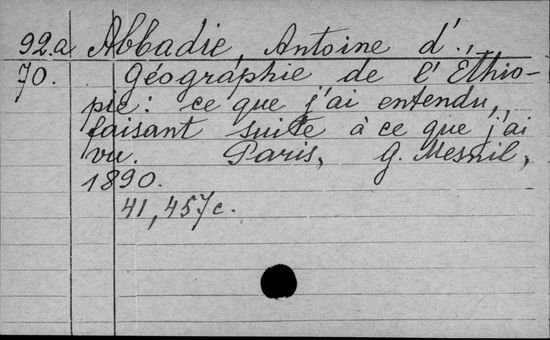 92.a Abbadie, Antoine d'.,
70. Géographie de l'Ethio-
pie: ce que j'ai entendu,
faisant suite à ce que j'ai
vu. Paris, G. Mesnil,
1890.
41,457c.